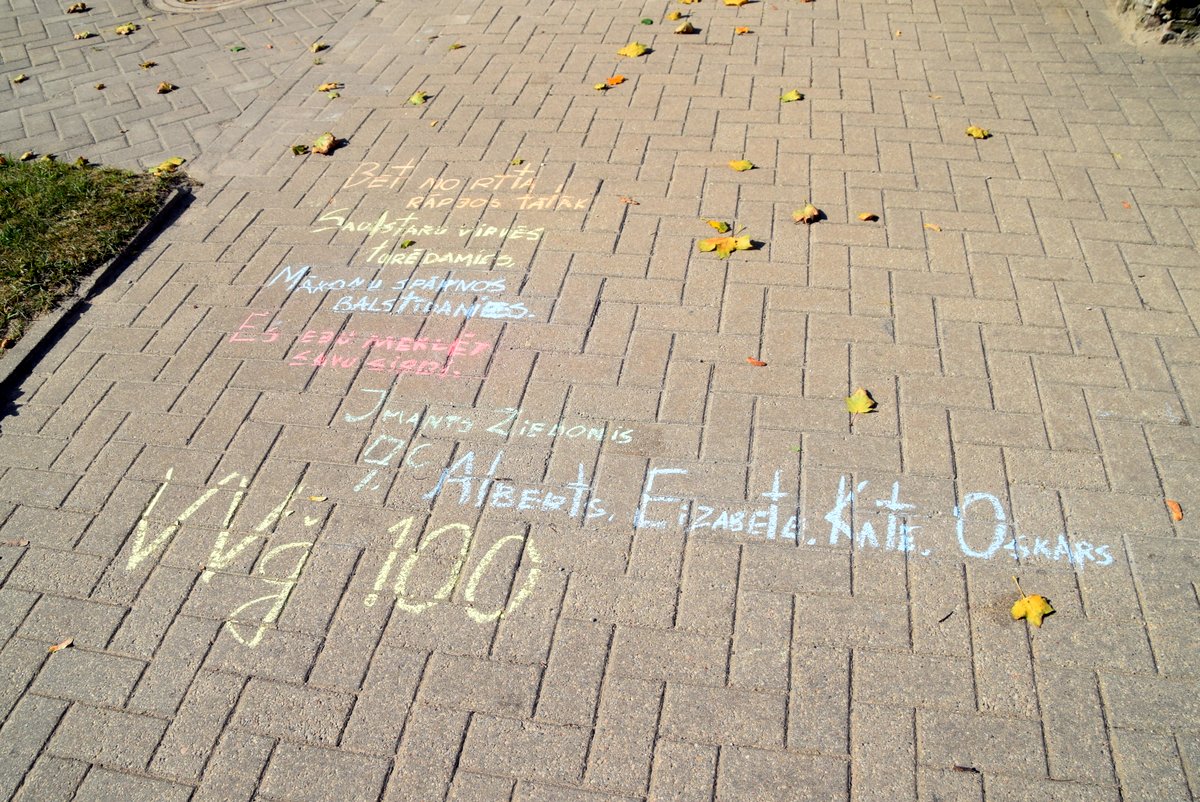 BET NO RĪTA,
RAPJOS TĀLĀK
SAULSTARU VIRVĒS
TURĒDAMIES,
MĀKOŅU SPĀRNOS
BALSTĪDAMIES.
ES EJU MEKLĒT
SAVU SIRDI.
IMANTS ZIEDONIS
C
ALBERTS, EIZABETE, KATE, OSKARS
VVĢ 100